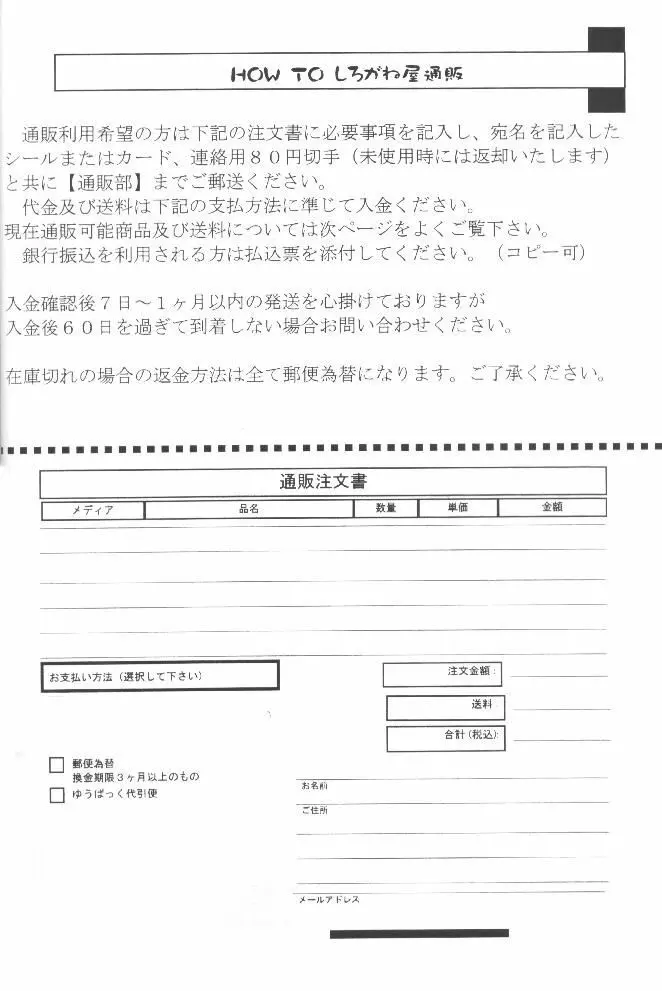 HOW TO しろがね屋通販
通販利用希望の方は下記の注文書に必要事項を記入し、宛名を記入した
シールまたはカード、連絡用８０円切手（未使用時には返却いたします）
と共に【通販部】までご郵送ください。
代金及び送料は下記の支払方法に準じて入金ください。
現在通販可能商品及び送料については次ページをよくご覧下さい。
銀行振込を利用される方は払込票を添付してください。（コピー可）
入金確認後７日～１ヶ月以内の発送を心掛けておりますが
入金後６０日を過ぎて到着しない場合お問い合わせください。
在庫切れの場合の返金方法は全て郵便為替になります。ご了承ください。
通販注文書
メディア 品名 数量 単価 金額
お支払い方法（選択して下さい）
注文金額：
送料
合計（税込）：
郵便為替
換金期限３ヶ月以上のもの
ゆうぱっく代引便
お名前
ご住所
メールアドレス